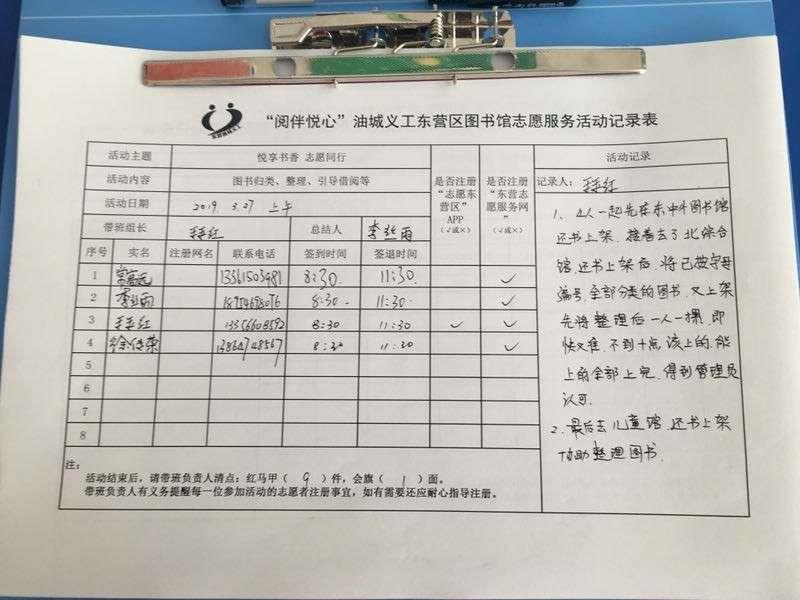 “阅伴悦心”油城义工东营区图书馆志愿服务活动记录表
活动主题 悦享书香 志愿同行
活动内容 图书归类、整理、引导借阅等
活动日期 2019. 3.27 上午
带班组长 总结人 李丝雨
是否注册“志愿东营区”APP（√或×）
是否注册“东营志愿服务网”（√或×）
序号 实名 注册网名 联系电话 签到时间 签退时间
1 13361503981 8:30. 11:30. √
2 李丝雨 8:30. 11:30. √
3 13356608592 8:30 11:30 √ √
4 徐传荣 13864748567 8:30 11:30 √
5
6
7
8
活动记录
记录人：
1、4人一起先在东中外图书馆
还书上架，接着去了北综合
馆，还书上架后，将已按字母
编号，全部分类的图书，又上架
先将整理后一人一摞，即
快又准，不到十点，该上的，能
上的全部上完，得到管理员
认可.
2、最后去儿童馆，还书上架
协助整理图书.
注：
活动结束后，请带班负责人清点：红马甲（ 9 ）件，会旗（ 1 ）面。
带班负责人有义务提醒每一位参加活动的志愿者注册事宜，如有需要还应耐心指导注册。